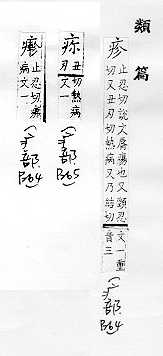 類篇
疹 止忍切說文脣瘍也又頸忍
切又丑刃切熱病又乃結切
文一重音三
(疒部 B64)
疢 丑刃切熱病
文一
(疒部 B65)
止忍切癢
病文一
(疒部 B64)